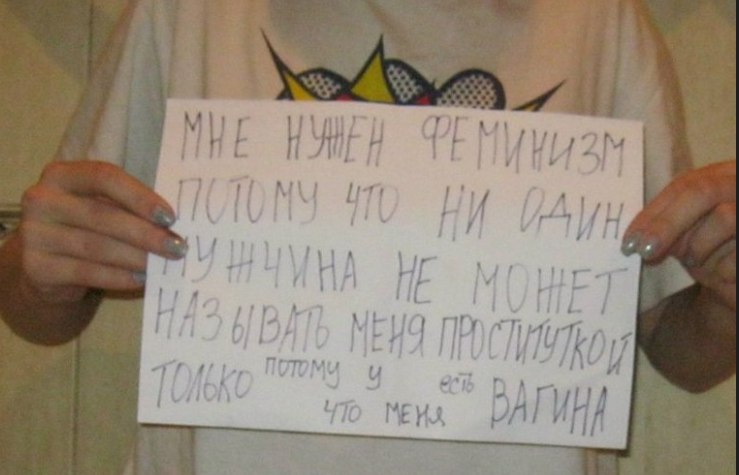 МНЕ НУЖЕН ФЕМИНИЗМ
ПОТОМУ ЧТО НИ ОДИН
МУЖЧИНА НЕ МОЖЕТ
НАЗЫВАТЬ МЕНЯ ПРОСТИТУТКОЙ
ТОЛЬКО потому что у меня есть ВАГИНА